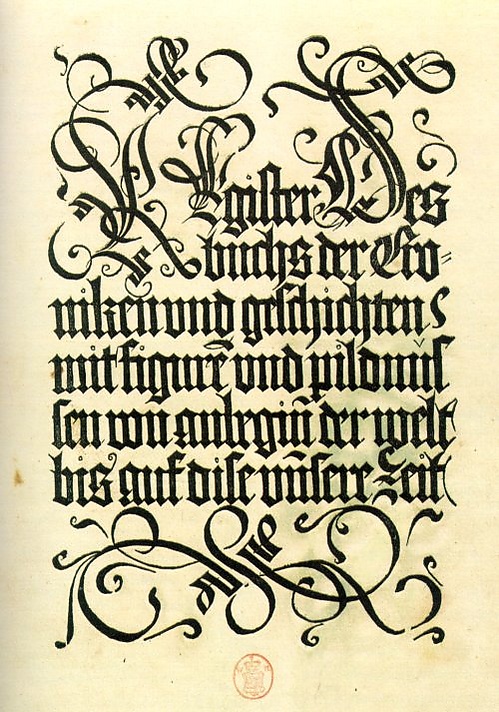 REgister Des
buchs der Cro-
niken vnd geschichten
mit figurē vnd pildnus
sen von anbegiñ der welt
bis auf dise vnsere Zeit